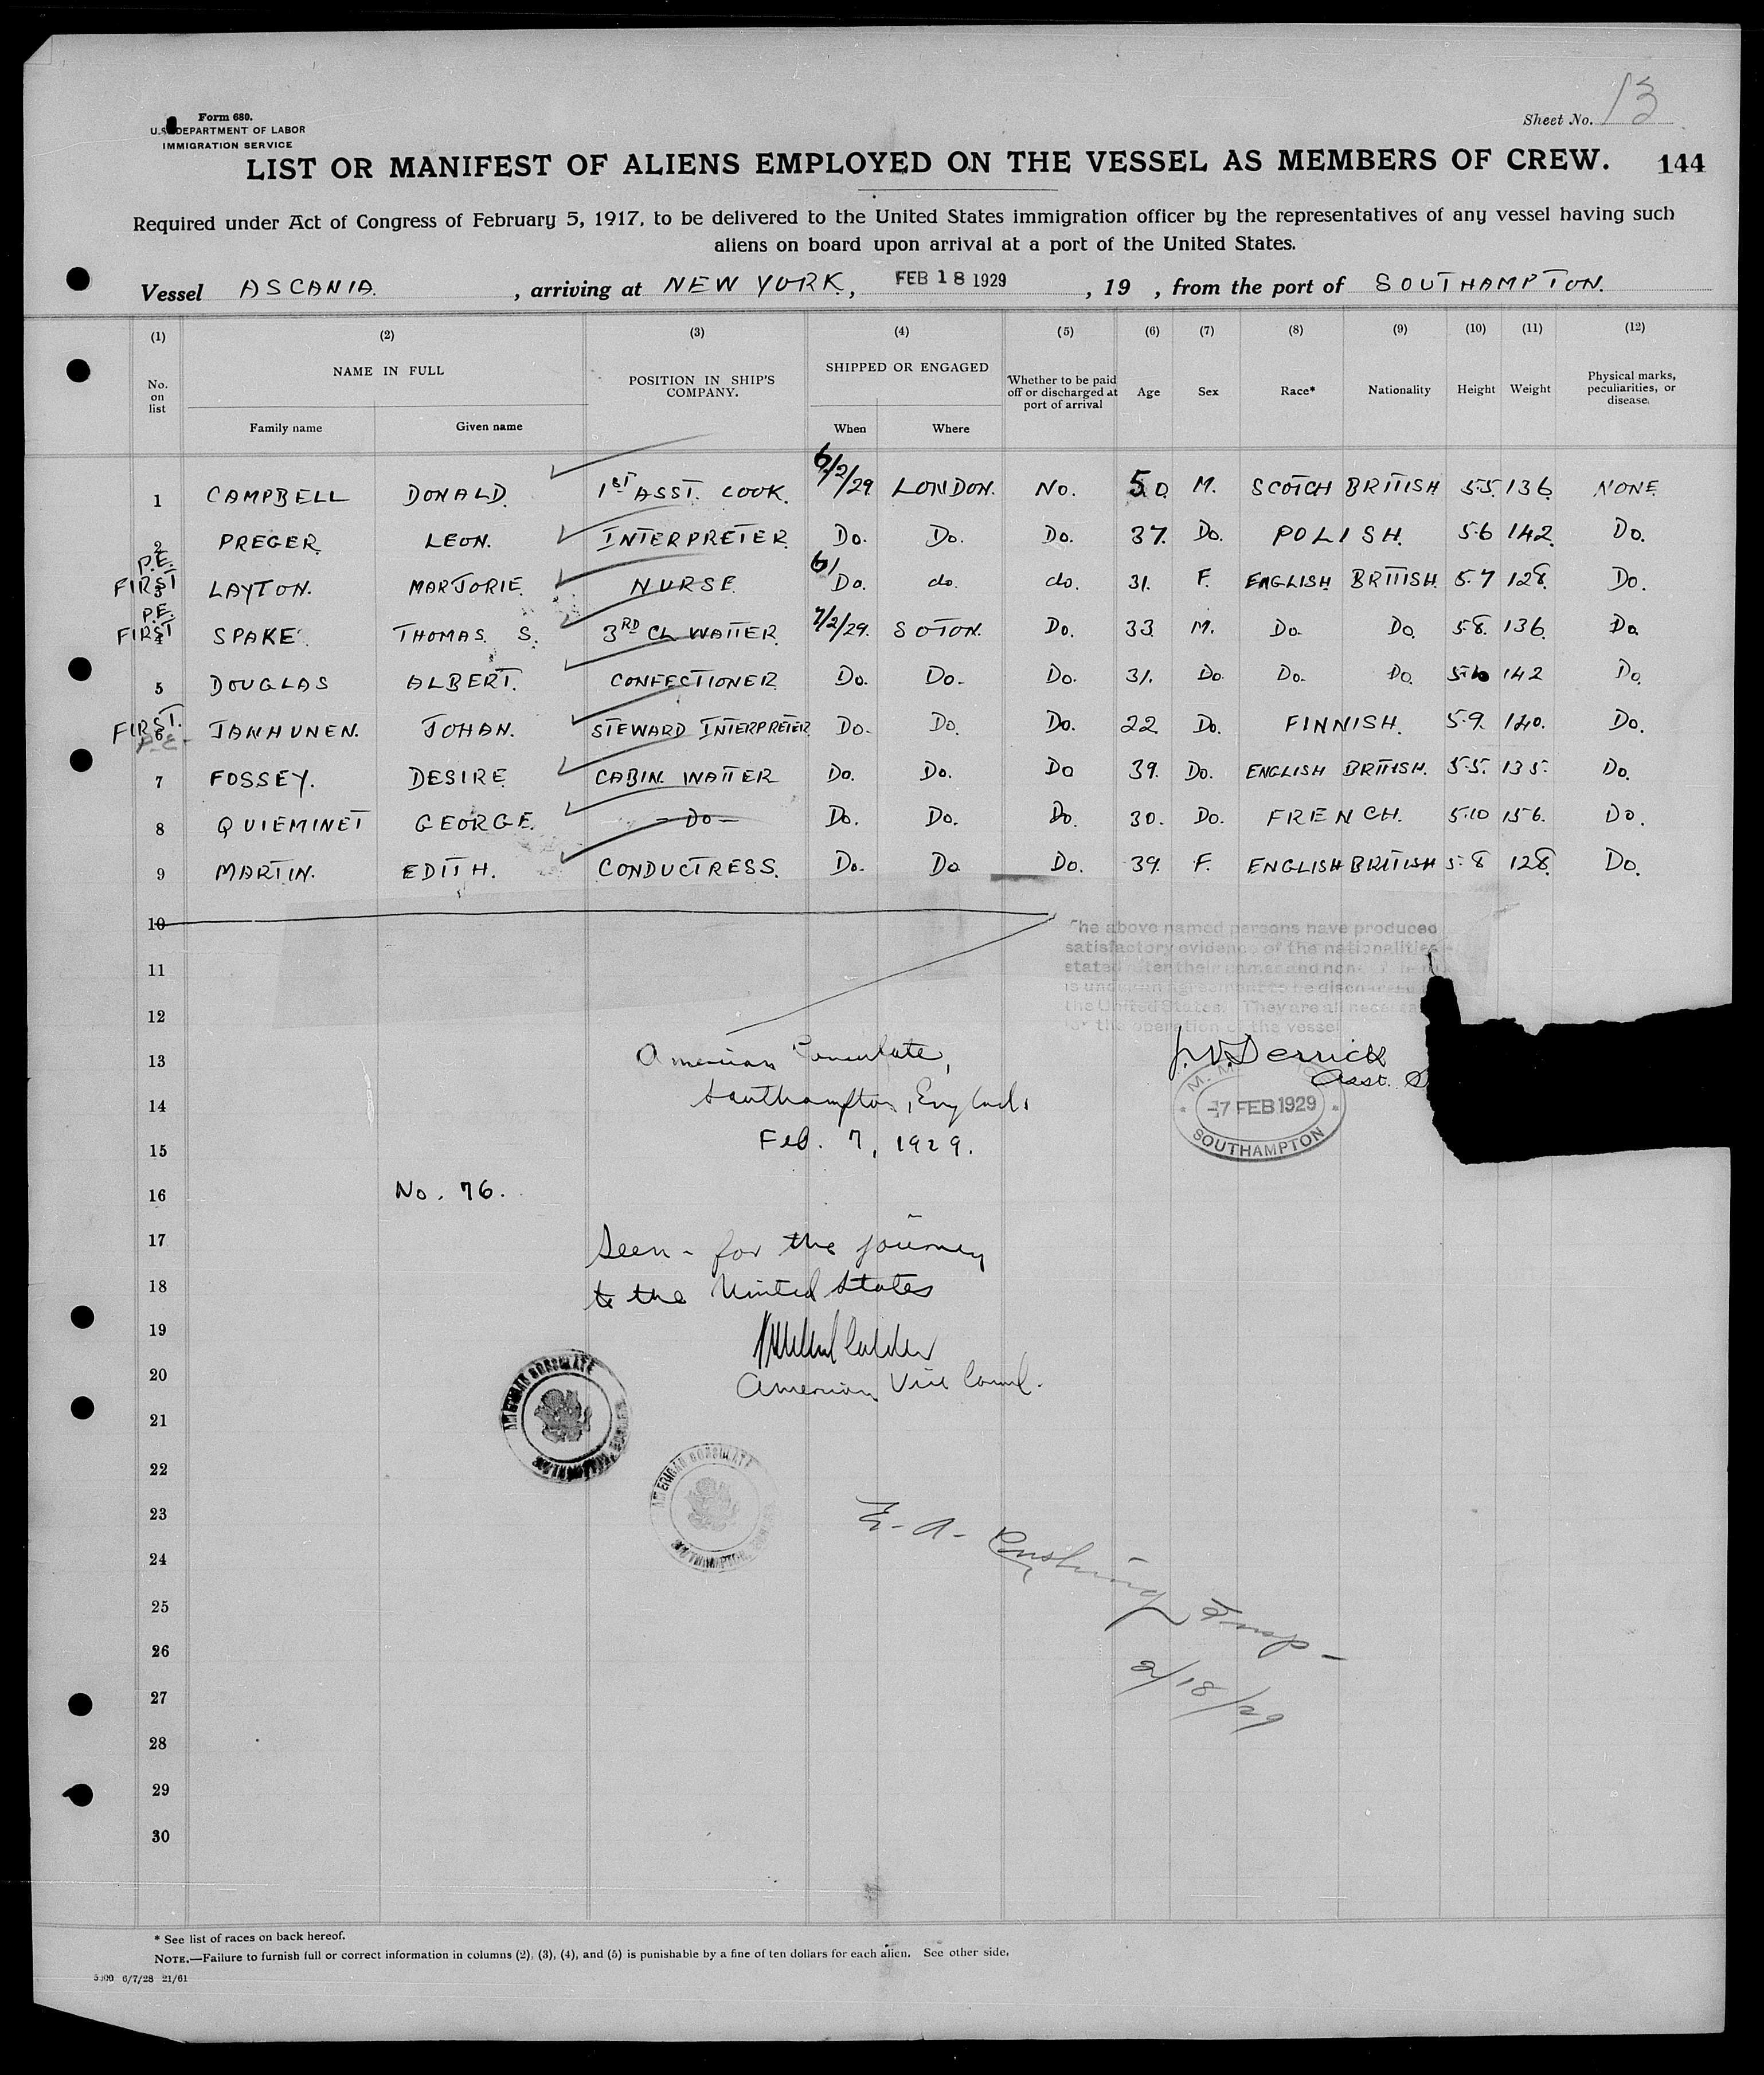 Form 680.
U.S. DEPARTMENT OF LABOR
IMMIGRATION SERVICE
Sheet No. 13
LIST OR MANIFEST OF ALIENS EMPLOYED ON THE VESSEL AS MEMBERS OF CREW. 144
Required under Act of Congress of February 5, 1917, to be delivered to the United States immigration officer by the representatives of any vessel having such
aliens on board upon arrival at a port of the United States.
Vessel ASCANIA. , arriving at NEW YORK, FEB 18 1929 , 19 , from the port of SOUTHAMPTON.
(1) (2) (3) (4) (5) (6) (7) (8) (9) (10) (11) (12)
No. on list NAME IN FULL Family name Given name POSITION IN SHIP'S COMPANY. SHIPPED OR ENGAGED When Where Whether to be paid off or discharged at port of arrival Age Sex Race* Nationality Height Weight Physical marks, peculiarities, or disease.
1 CAMPBELL DONALD. 1ST ASST. COOK. 6/2/29 LONDON. NO. 50. M. SCOTCH BRITISH 5.5. 136. NONE.
2 PREGER. LEON. INTERPRETER. Do. Do. Do. 37. Do. POLISH. 5.6 142. Do.
P.E.
FIRST 3 LAYTON. MARJORIE. NURSE. 6/ Do. do. do. 31. F. ENGLISH BRITISH. 5.7 128. Do.
P.E.
FIRST 4 SPAKE. THOMAS. S. 3RD CL. WAITER. 7/2/29. SOTON. Do. 33. M. Do. Do. 5.8. 136. Do.
5 DOUGLAS ALBERT. CONFECTIONER. Do. Do. Do. 31. Do. Do. Do. 5.10 142 Do.
FIRST. 6 JANHUNEN. JOHAN. STEWARD INTERPRETER. Do. Do. Do. 22. Do. FINNISH. 5.9. 140. Do.
P.E.
7 FOSSEY. DESIRE. CABIN. WAITER Do. Do. Do 39. Do. ENGLISH BRITISH. 5.5. 135. Do.
8 QUIEMINET GEORGE. - Do - Do. Do. Do. 30. Do. FRENCH. 5.10 156. Do.
9 MARTIN. EDITH. CONDUCTRESS. Do. Do. Do. 39. F. ENGLISH BRITISH 5.8 128. Do.
10
The above named persons have produced
satisfactory evidence of the nationalities
stated after their names and none of them
is under an agreement to be discharged in
the United States. They are all necessary
for the operation of the vessel
11
12
13
American Consulate,
J. V. Derrick
Asst.
14
Southampton, England.
-7 FEB 1929
SOUTHAMPTON
15
Feb. 7, 1929.
16
No. 76.
17
Seen - for the journey
18
to the United States
19
20
American Vice Consul.
AMERICAN CONSULATE
21
22
AMERICAN CONSULATE
SOUTHAMPTON
23
E. A. Cushing Insp -
24
25
26
2/18/29
27
28
29
30
* See list of races on back hereof.
NOTE.—Failure to furnish full or correct information in columns (2), (3), (4), and (5) is punishable by a fine of ten dollars for each alien. See other side.
6/7/28 21/61